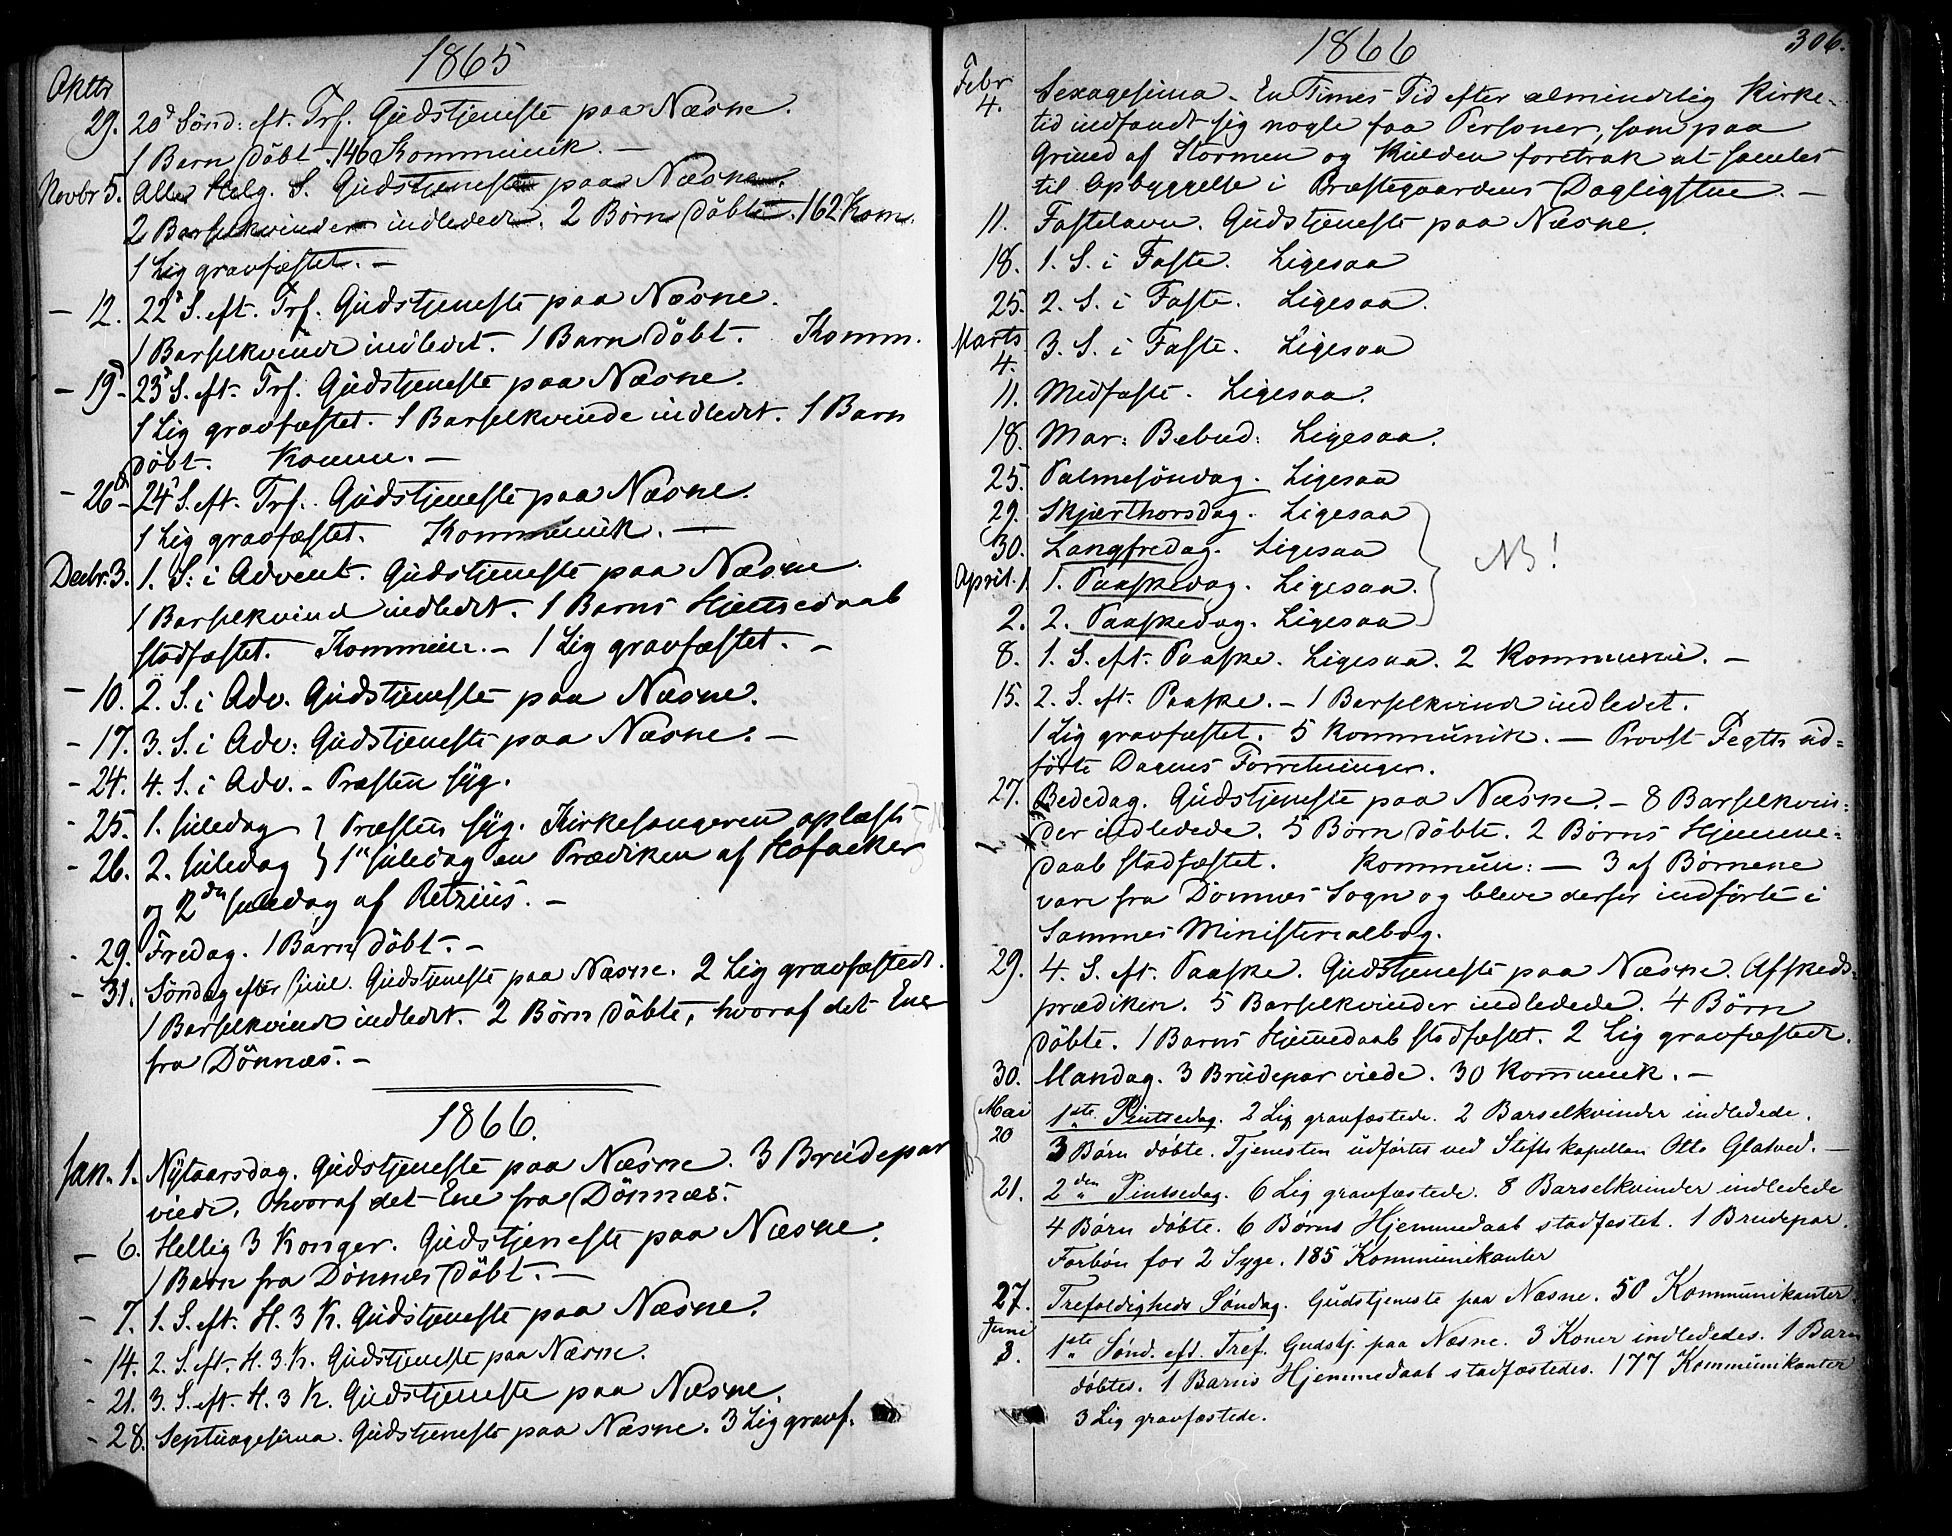 1865
Oktbr
29. 20d Sønd: eft. Trf. Gudstjeneste paa Næsne.
1 Barn döbt. 146 Kommunik. –
Novbr 5. Alle Helg. S. Gudstjeneste paa Næsne.
2 Barselkvinder indledede. 2 Börn döbte. 162 Kom.
1 Lig gravfæstet. –
– 12. 22d S. eft. Trf. Gudstjeneste paa Næsne.
1 Barselkvinde indledet. 1 Barn döbt. Komm.
– 19 – 23d S. eft. Trf. Gudstjeneste paa Næsne.
1 Lig gravfæstet. 1 Barselkvinde indledet. 1 Barn
döbt. Komm. –
– 26 – 24d S. eft. Trf. Gudstjeneste paa Næsne.
1 Lig gravfæstet. Kommunik. –
Decbr. 3. 1. S. i Advent. Gudstjeneste paa Næsne.
1 Barselkvinde indledet. 1 Barns Hjemmedaab
stadfæstet. Kommun. – 1 Lig gravfæstet. –
– 10. 2. S. i Adv. Gudstjeneste paa Næsne.
– 17. 3. S. i Adv: Gudstjeneste paa Næsne. –
– 24. 4. S. i Adv. – Præsten syg.
- 25. 1. Juledag } Præsten syg. Kirkesangeren oplæste
- 26. 2. Juledag } 1ste Juledag en Prædiken af Hofacker
og 2den Juledag af Retzius. –
- 29. Fredag. 1 Barn döbt. –
- 31. Söndag efter Juul. Gudstjeneste paa Næsne. 2 Lig gravfæstede.
1 Barselkvinde indledet. 2 Börn döbte, hvoraf det Ene
fra Dönnæs. –
1866.
Jan. 1. Nytaarsdag. Gudstjeneste paa Næsne. 3 Brudepar
viede, hvoraf det Ene fra Dönnæs.
– 6. Hellig 3 Konger. Gudstjeneste paa Næsne.
1 Barn fra Dönnæs döbt. –
– 7. 1. S. eft. H. 3 K. Gudstjeneste paa Næsne.
- 14. 2. S. eft. H. 3 K. Gudstjeneste paa Næsne.
- 21. 3. S. eft. H. 3 K. Gudstjeneste paa Næsne.
- 28. Septuagesima. Gudstjeneste paa Næsne. 3 Lig gravf.
1866
306.
Febr
4. Sexagesima – En Times Tid efter almindelig Kirke-
tid indfandt sig nogle faa Personer, som paa
Grund af Stormen og Kulden foretrak at samles
til Opbyggelse i Præstegaardens Dagligstue. –
11. Fastelavn. Gudstjeneste paa Næsne.
18. 1. S. i Faste. Ligesaa
25. 2. S. i Faste. Ligesaa.
Marts
4. 3. S. i Faste. Ligesaa
11. Midfaste. Ligesaa.
18. Mar: Bebud: Ligesaa.
25. Palmesöndag. Ligesaa
29. Skjærthorsdag. Ligesaa
30. Langfredag. Ligesaa
NB!
April. 1. 1. Paaskedag. Ligesaa.
2. 2. Paaskedag. Ligesaa
8. 1. S. eft. Paaske. Ligesaa. 2 Kommunik. –
15. 2. S. eft. Paaske. – 1 Barselkvinde indledet.
1 Lig gravfæstet. 5 Kommunik. – Provst ud=
förte Dagens Forretninger.
27. Bededag. Gudstjeneste paa Næsne. – 8 Barselkvin=
der indledede. 5 Börn döbte. 2 Börns Hjemme=
daab stadfæstet. Kommun: – 3 af Börnene
vare fra Dönnæs Sogn og bleve derfor indförte i
Sammes Ministerialbog.
29. 4. S. eft. Paaske. Gudstjeneste paa Næsne. Afskeds=
prædiken. 5 Barselkvinder indledede. 4 Börn
döbte. 1 Barns Hjemmedaab stadfæstet. 2 Lig gravfæstede.
30. Mandag. 3 Brudepar viede. 30 Kommunik. –
Mai
20 1ste Pintsedag. 2 Lig gravfæstede. 2 Barselkvinder indledede.
3 Børn døbte. Tjenesten udførtes ved Stiftskapellan Otto Glatved. –
21. 2den Pintsedag. 6 Lig gravfæstede. 8 Barselkvinder indledede
4 Børn døbte. 6 Børns Hjemmedaab stadfæstet. 1 Brudepar.
Forbøn for 2 Syge. 185 Kommunikanter
27. Trefoldigheds Søndag. Gudstjeneste paa Næsne. 50 Kommunikanter.
Juni
3. 1ste Sønd. eft. Tref. Gudstj. paa Næsne. 3 Koner indlededes. 1 Barn
døbtes. 1 Barns Hjemmedaab stadfæstedes. 177 Kommunikanter
3 Lig gravfæstede.